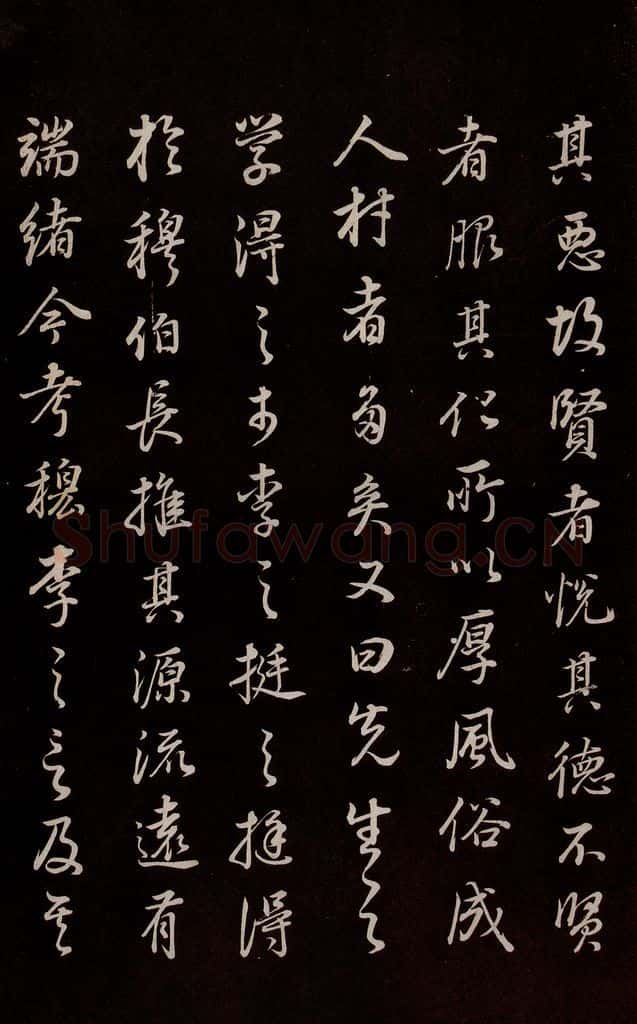 其惡故賢者悅其德不賢
者服其化所以厚風俗成
人材者多矣又曰先生之
学得之于李之挺之挺得
於穆伯長推其源流遠有
端緒今考穆李之言及其
Shufawang.CN